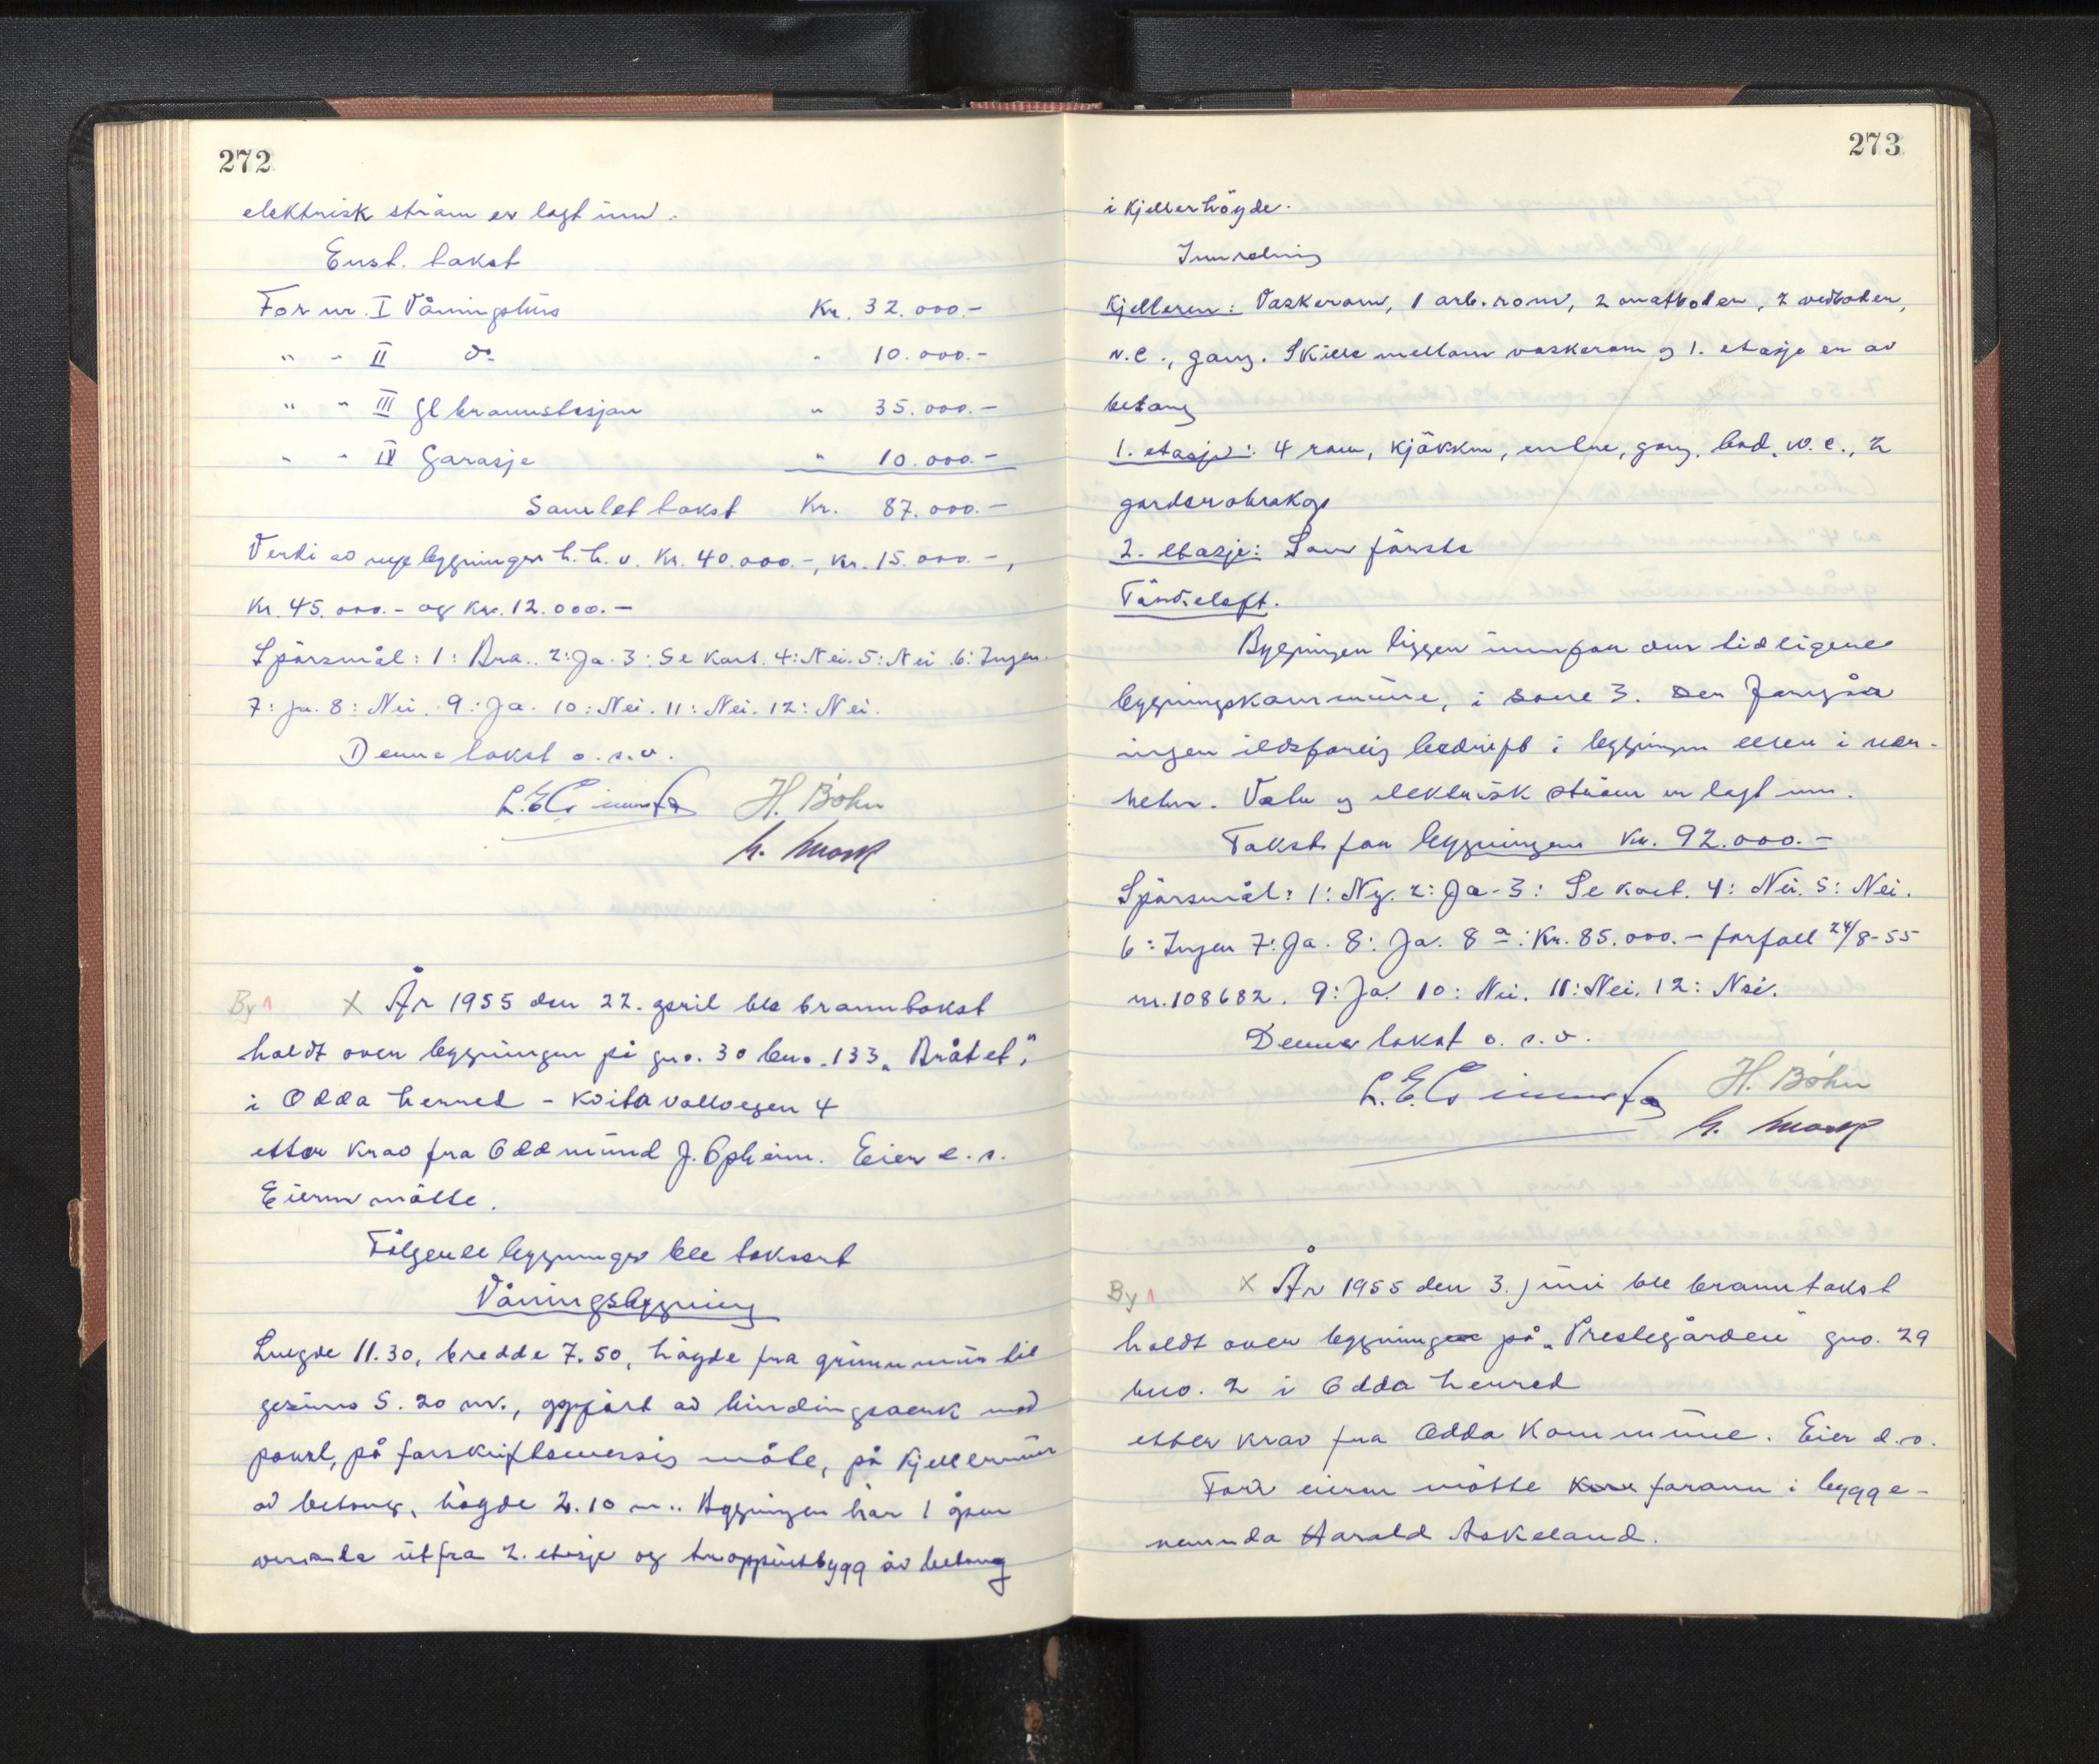 272
elektrisk ström er lagt inn.
Enst. takst
For nr. I Våningshus Kr. 32.000.-
" " II do " 10.000.-
" " III Gl brannstasjon " 35.000.-
" " IV Garasje " 10.000.-
Samlet takst Kr. 87.000.-
Verdi av nye bygninger h.h.v. Kr. 40.000.-, Kr. 15.000.-,
Kr. 45.000.- og Kr. 12.000.-
Spörsmål: 1: Bra. 2: Ja. 3: Se kart. 4: Nei. 5: Nei. 6: Ingen.
7: Ja. 8: Nei. 9: Ja. 10: Nei. 11: Nei. 12: Nei.
Denne takst o.s.v.
H. Bøhn
By 1 X År 1955 den 22. april ble branntakst
holdt over bygningen på gno. 30 bno. 133 „Bråtet",
i Odda herred - Kvitavollvegen 4
etter krav fra Oddmund J. Opheim. Eier d.s.
Eieren mötte.
Fölgende bygninger ble taksert
Våningsbygning
Lengde 11.30, bredde 7.50, högde fra grunnmur til
gesims 5.20 m., oppfört av bindingsverk med
panel, på forskriftsmessig måte, på kjellermur
av betong, högde 2.10 m.. Bygningen har 1 åpen
veranda ut fra 2. etasje og trappeutbygg av betong
273
i kjellerhöyde.
Innredning
Kjelleren: Vaskerom, 1 arb.rom, 2 matboder, 2 vedboder,
w.c., gang. Skille mellom vaskerom og 1. etasje er av
betong
1. etasje: 4 rom, kjökken, entre, gang, bad, w.c., 2
garderobeskap
2. etasje: Som förste
Tönneloft.
Bygningen ligger innfor den tidligere
bygningskommune, i sone 3. Der foregår
ingen ildsfarlig bedrift i bygningen eller i nær-
heten. Vatn og elektrisk ström er lagt inn.
Takst for bygningen Kr. 92.000.-
Spörsmål: 1: Ny. 2: Ja. 3: Se kart. 4: Nei. 5: Nei.
6: Ingen 7: Ja. 8: Ja. 8 a: Kr. 85.000.- forfall 24/8-55
nr. 108682. 9: Ja. 10: Nei. 11: Nei. 12: Nei.
Denne takst o.s.v.
H. Bøhn
By 1 X År 1955 den 3. juni ble branntakst
holdt over bygningene på „Prestegården" gno. 29
bno. 2 i Odda herred
etter krav fra Odda Kommune. Eier d.s.
For eieren mötte formann i bygge-
nemnda Harald Askeland.